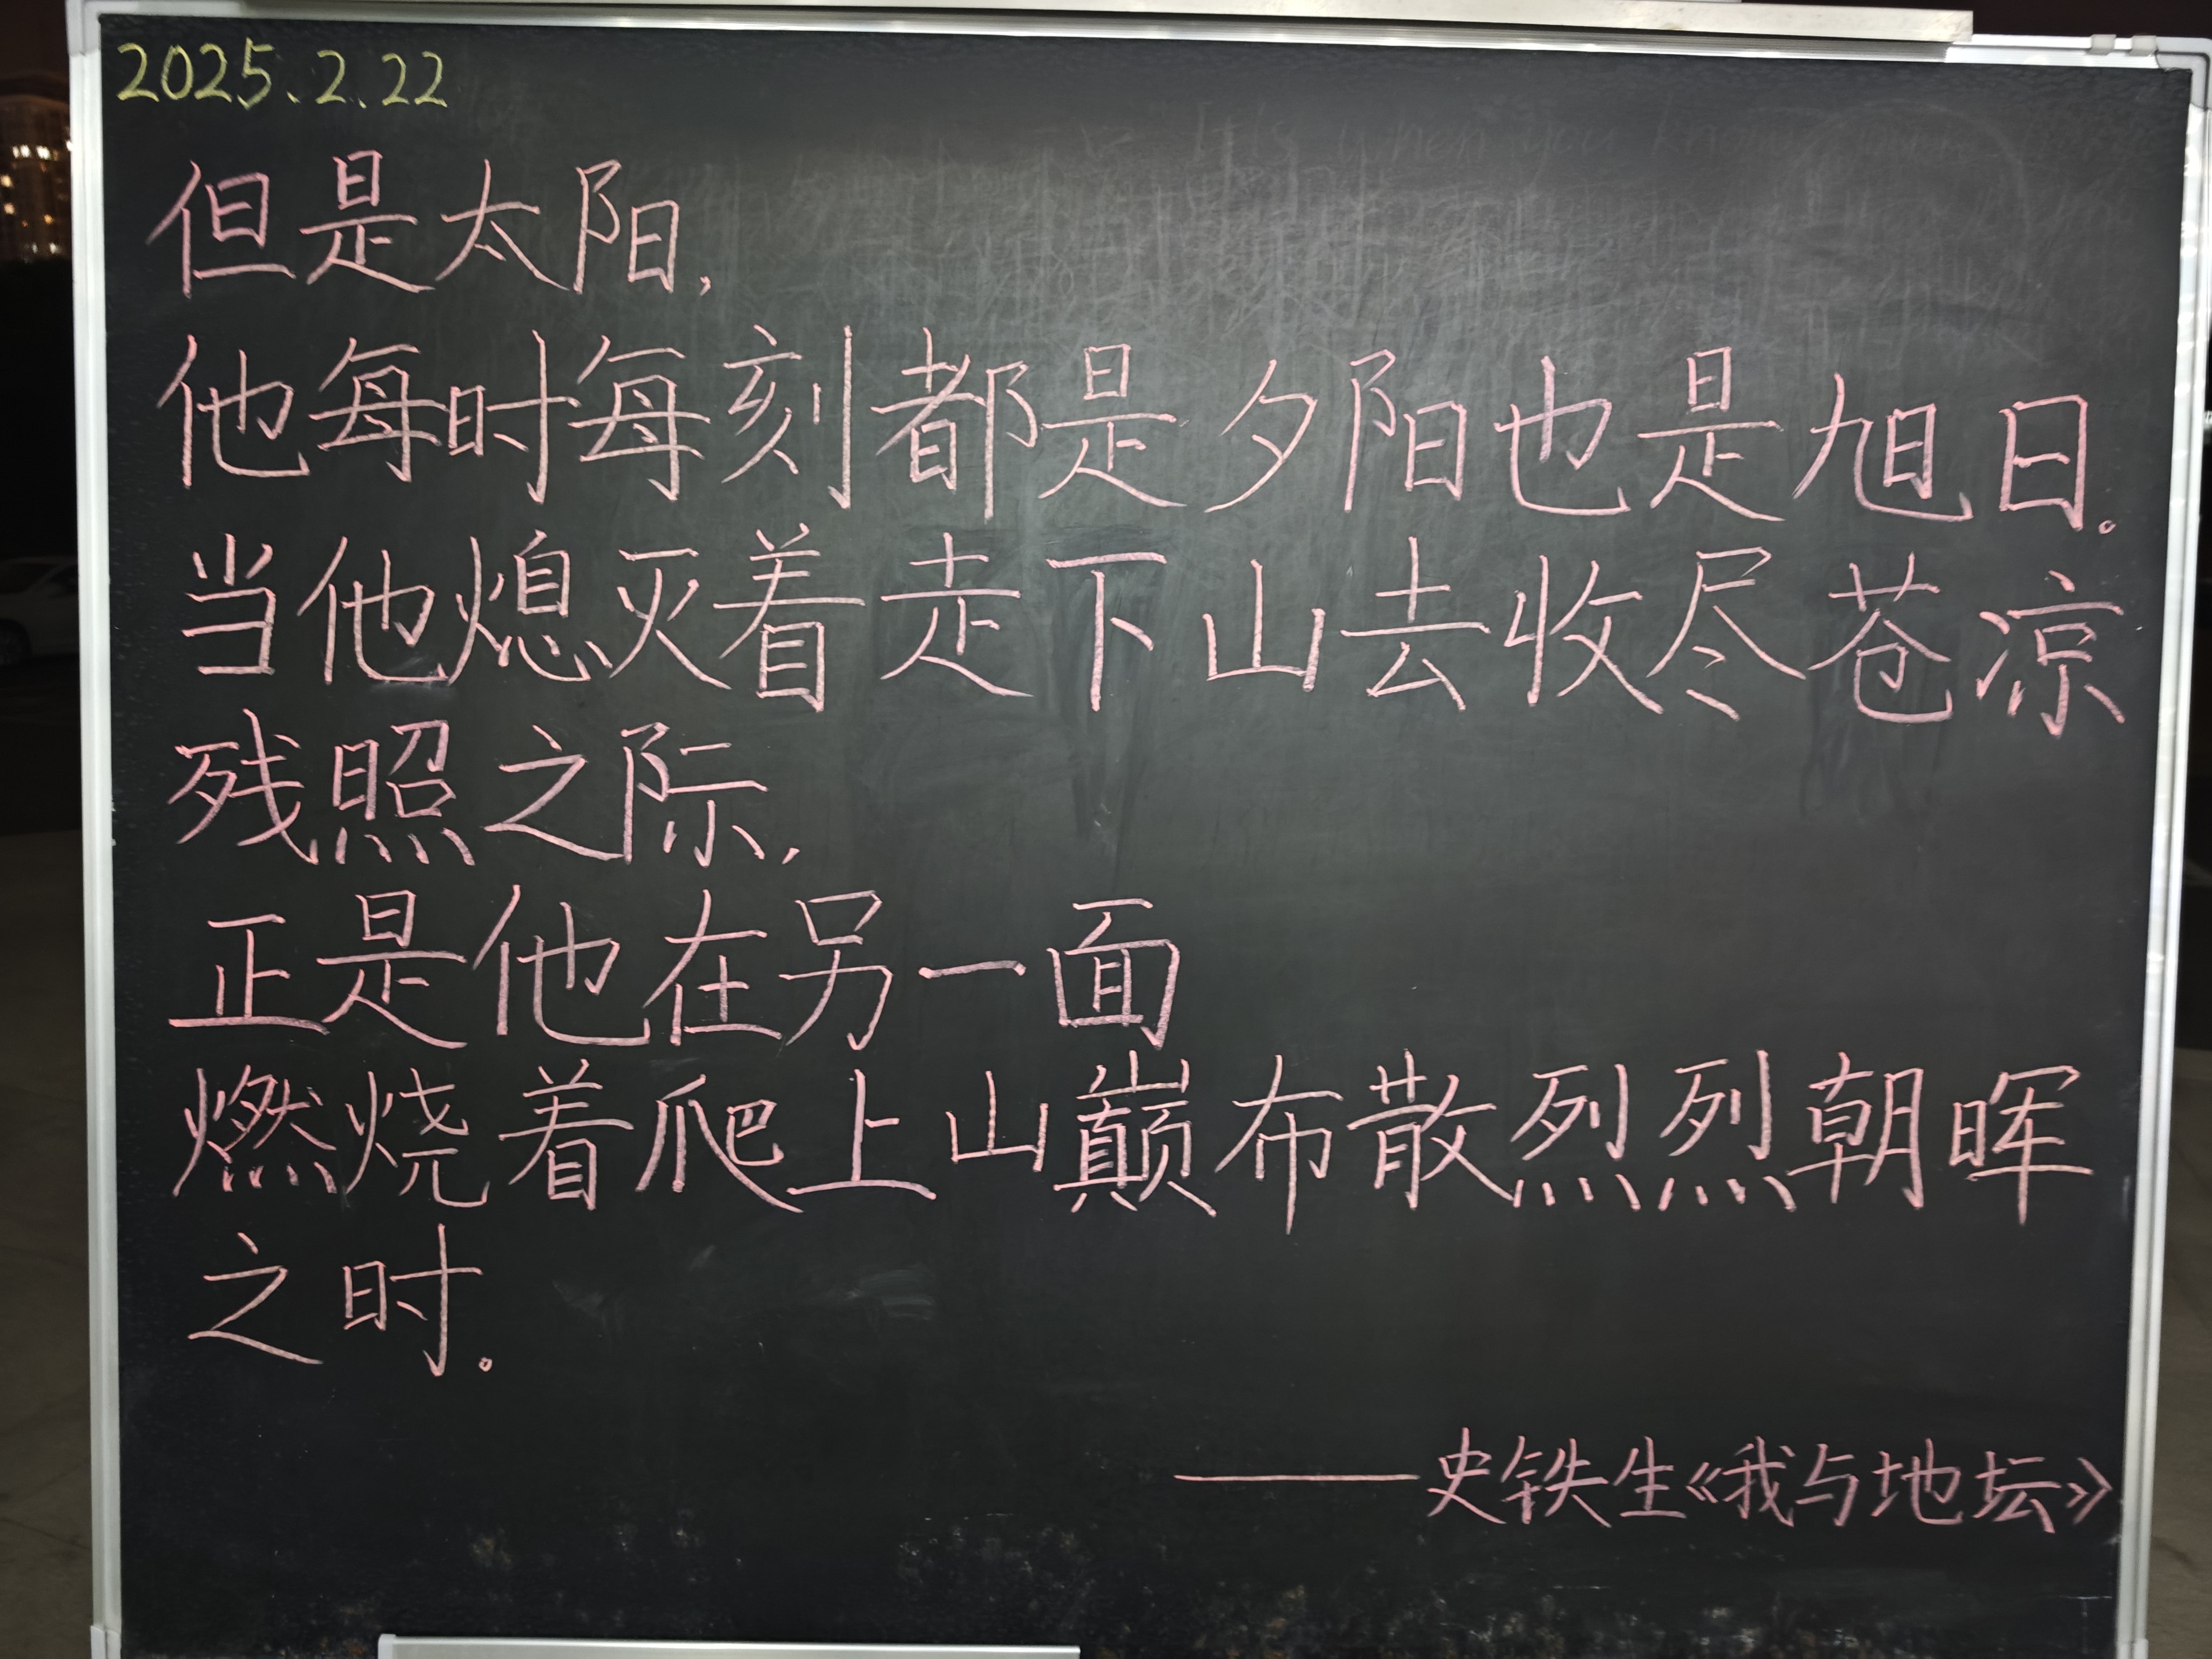 2025.2.22
但是太阳,
他每时每刻都是夕阳也是旭日。
当他熄灭着走下山去收尽苍凉
残照之际,
正是他在另一面
燃烧着爬上山巅布散烈烈朝晖
之时。
——史铁生《我与地坛》